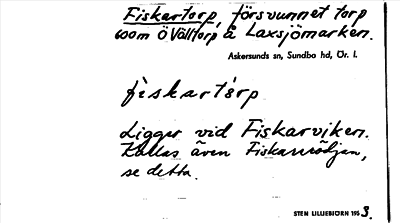 Fiskartorp, försvunnet torp
600m Ö Välltorp å Laxsjömarken.
Askersunds sn, Sundbo hd, Ör. l.
fìskartòrp
Ligger vid Fiskarviken.
Kallas även Fiskarrödjan,
se detta.
STEN LILLIEBJÖRN 1953.